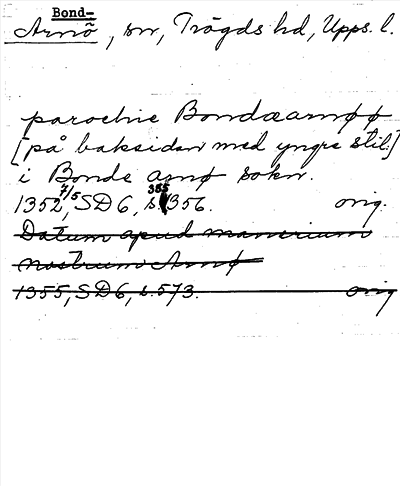 Bond-
Arnö, sn, Trögds hd, Upps. l.
parochie Bondaarnøø
[på baksidan med yngre stil:]
i Bonde arnø sokn.
1352 7/5, SD 6, s. 355 356. orig.
Datum apud manerium
nostrum Arnø
1355, SD 6, s. 573. orig